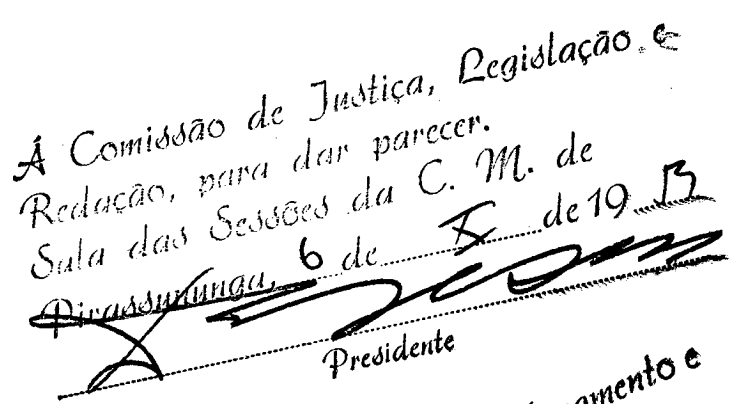 Á Comissão de Justiça, Legislação e
Redação, para dar parecer.
Sala das Sessões da C. M. de
Pirassununga, 6 de X de 19
Presidente
amento e